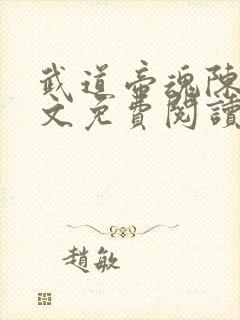 武道帝魂陳
文免費閱讀
趙敏